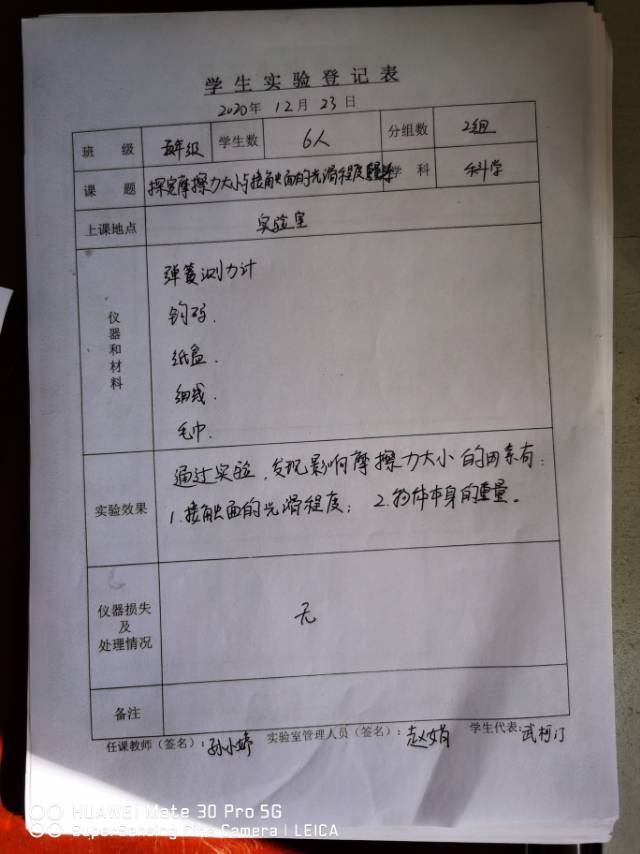 学生实验登记表
2020年 12月 23日
班 级 五年级 学生数 6人 分组数 2组
课 题 探究摩擦力大小与接触面的光滑程度 学 科 科学
上课地点 实验室
仪器和材料
弹簧测力计
钩码.
纸盒.
细线.
毛巾.
实验效果
通过实验,发现影响摩擦力大小的因素有:
1.接触面的光滑程度; 2.物体本身的重量。
仪器损失及处理情况 无
备注
任课教师(签名):孙小婷 实验室管理人员(签名):赵娟 学生代表:武
HUAWEI Mate 30 Pro 5G
SuperSensing Cine Camera | LEICA